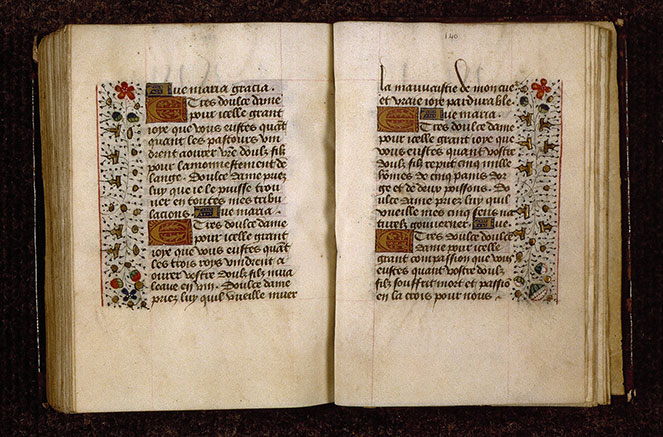 Aue maria gracia.
E Tres doulce dame
pour icelle grant
ioye que vous eustes quãt
quant les pastours vin
drent aourer vr̃e doulz filz
pour lamoniestement de
lange. Doulce dame priez
luy que ie le puisse trou
uer en toutes mes tribu
lacions. Aue maria.
E Tres doulce dame
pour icelle grant
ioye que vous eustes quãt
les trois roys vindrent a
ourer vostre doulz filz
leaue en vin. Doulce dame
priez luy quil vueille muer
140
la mauuaistie de mon cue
et vraie ioye pardurable.
E Aue maria.
Tres doulce dame
pour icelle grant ioye que
vous eustes quant vostre
doulz filz reput cinq mille
hõmes de cinq pains dor
ge et de deux poissons. Do
ulce dame priez luy quil
vueille mes cinq sens na
turelz gouuerner. Aue.
E Tres doulce doulce
dame pour icelle
grant compassion que vous
eustes quant vostre doulz
filz souffrit mort et passiõ
en la crois pour nous.